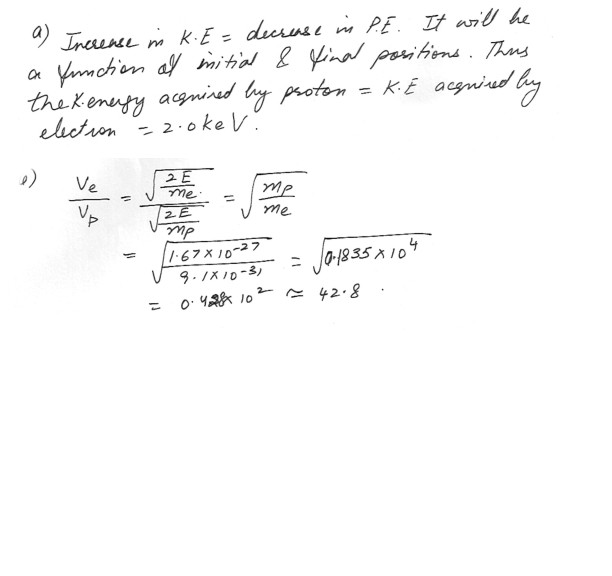 a) Increase in K.E = decrease in P.E. It will be
a function of initial & final positions. Thus
the K.energy acquired by proton = K.E acquired by
electron = 2.0 keV.
e) Ve/Vp = √(2E/me) / √(2E/mp) = √(mp/me)
= √(1.67 × 10^-27 / 9.1 × 10^-31) = √(0.1835 × 10^4)
= 0.428 × 10^2 ≈ 42.8 .